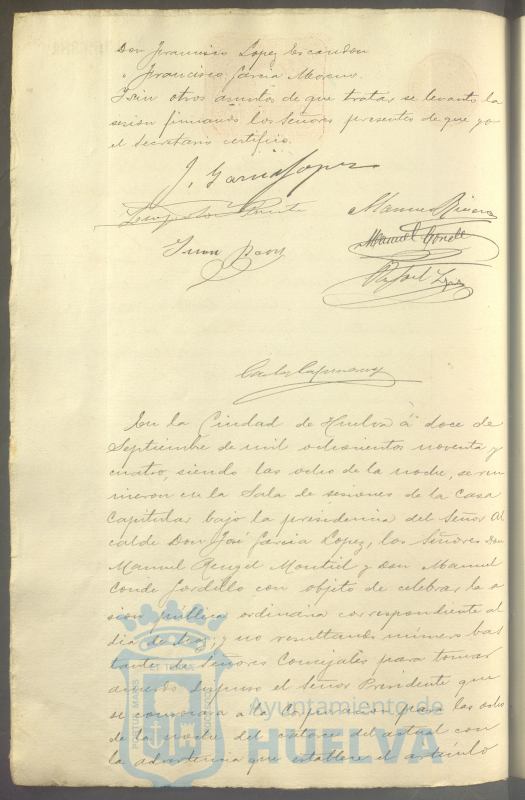 Don Francisco Lopez Escandon
" Francisco Garcia Moreno.
Y sin otros asuntos de que tratar se levantó la
sesion firmando los Señores presentes de que yo
el Secretario certifico.
J. Garcia Lopez
Manuel Rivera
Manuel Conde
Juan
Rafael
En la Ciudad de Huelva á doce de
Septiembre de mil ochocientos noventa y
cuatro, siendo las ocho de la noche, se reu
nieron en la Sala de sesiones de la Casa
Capitular bajo la presidencia del Señor Al
calde Don José Garcia Lopez, los Señores Don
Manuel Rengel Montiel y Don Manuel
Conde Gordillo con objeto de celebrar la se
sion pública ordinaria correspondiente al
dia de hoy; y no resultando número bas
tante de Señores Concejales para tomar
acuerdo dispuso el Señor Presidente que
se convocara a la Corporacion para las ocho
de la noche del catorce del actual con
la advertencia que establece el articulo
PORTUS MARIS ET TERRAE CUSTODIA
Ayuntamiento de
HUELVA